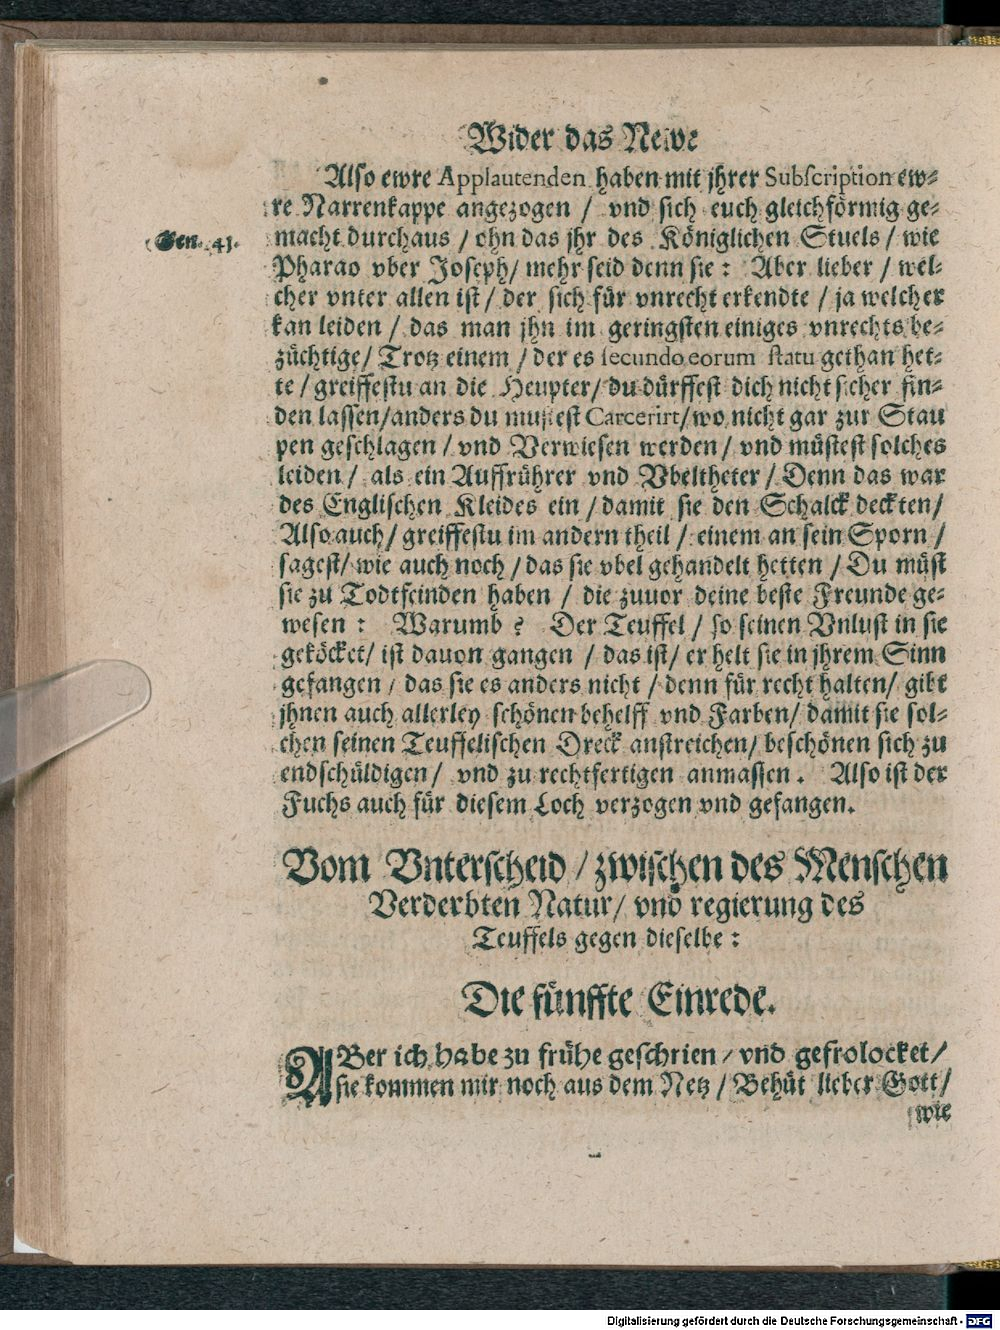 Wider das Newe
Also ewre Applautenden haben mit jhrer Subscription ew-
re Narrenkappe angezogen / vnd sich euch gleichförmig ge-
Gen. 41.
macht durchaus / ohn das jhr des Königlichen Stuels / wie
Pharao vber Joseph / mehr seid denn sie: Aber lieber / wel-
cher vnter allen ist / der sich für vnrecht erkendte / ja welcher
kan leiden / das man jhn im geringsten einiges vnrechts be-
züchtige / Trotz einem / der es secundo eorum statu gethan het-
te / greiffestu an die Heupter / du dürffest dich nicht sicher fin-
den lassen / anders du mussest Carcerirt / wo nicht gar zur Stau
pen geschlagen / vnd Verwiesen werden / vnd müstest solches
leiden / als ein Auffrührer vnd Vbeltheter / Denn das war
des Englischen Kleides ein / damit sie den Schalck deckten /
Also auch / greiffestu im andern theil / einem an sein Sporn /
sagest / wie auch noch / das sie vbel gehandelt hetten / Du müst
sie zu Todtfeinden haben / die zuuor deine beste Freunde ge-
wesen: Warumb? Der Teuffel / so seinen Vnlust in sie
geköcket / ist dauon gangen / das ist / er helt sie in jhrem Sinn
gefangen / das sie es anders nicht / denn für recht halten / gibt
jhnen auch allerley schönen behelff vnd Farben / damit sie sol-
chen seinen Teuffelischen Dreck anstreichen / beschönen sich zu
endschüldigen / vnd zu rechtfertigen anmassen. Also ist der
Fuchs auch für diesem Loch verzogen vnd gefangen.
Vom Vnterscheid / zwischen des Menschen
Verderbten Natur / vnd regierung des
Teuffels gegen dieselbe:
Die fünffte Einrede.
ABer ich habe zu frühe geschrien / vnd gefrolocket /
sie kommen mir noch aus dem Netz / Behüt lieber Gott /
wie
Digitalisierung gefördert durch die Deutsche Forschungsgemeinschaft - DFG